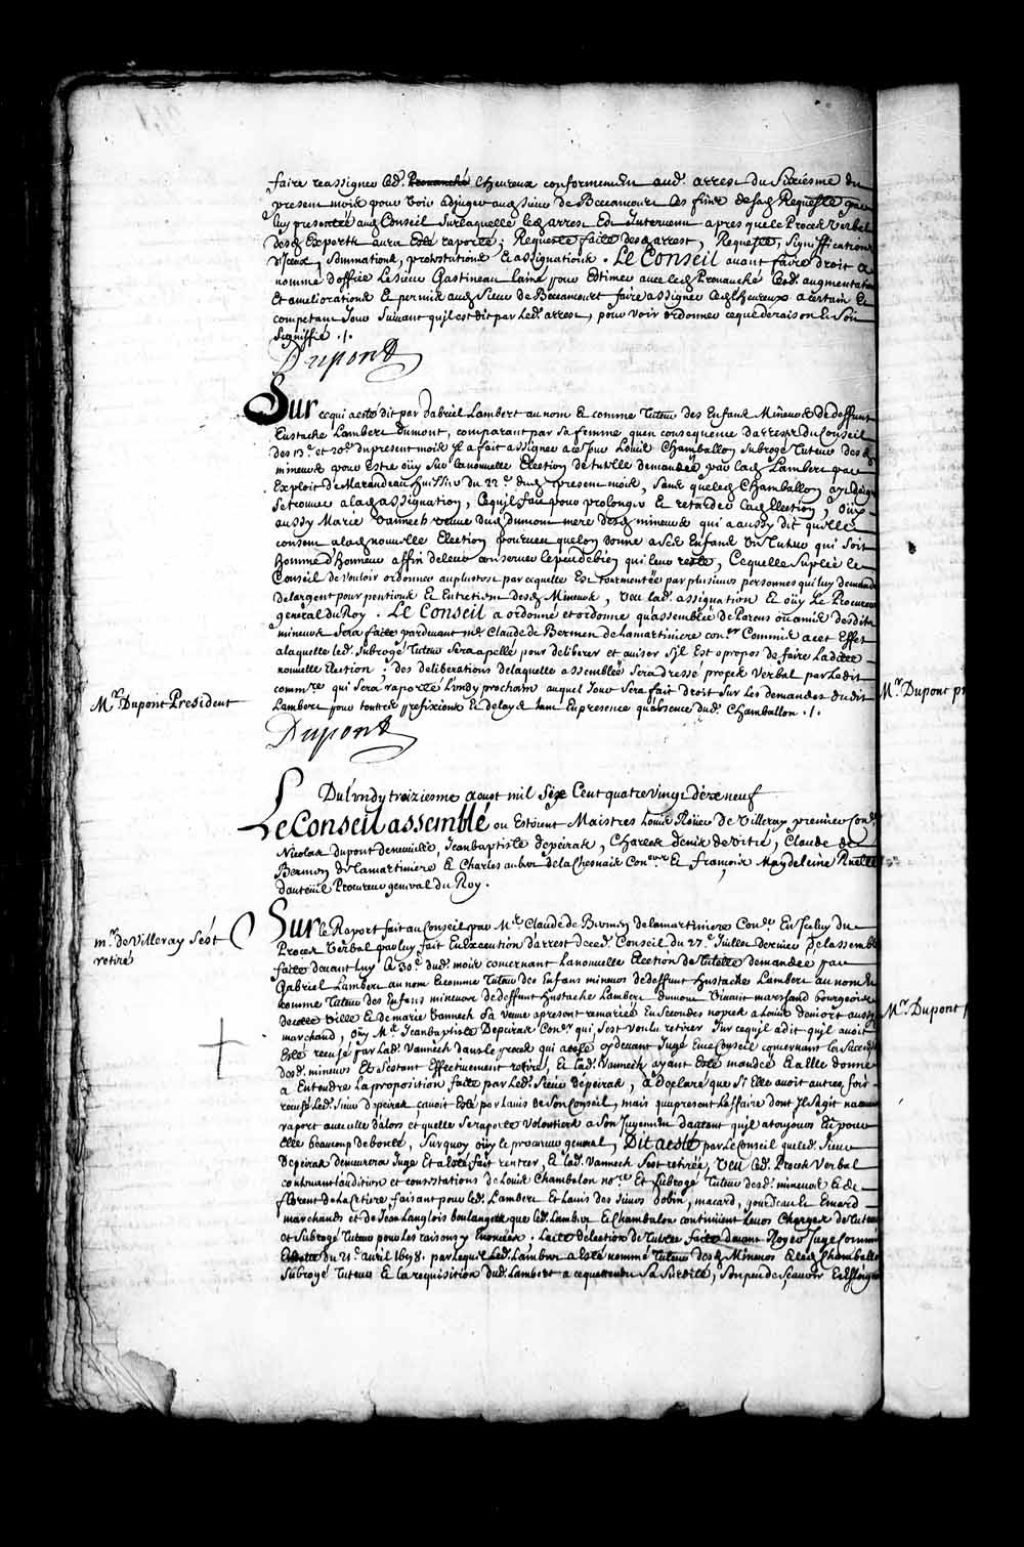 faire reassigner led. Prouanché Lheureux conformement aud. arrest du Sixiesme du
present mois pour voir adjuger aud Sieur de Beccancourt les fins de sad Requeste par
luy presentée aud Conseil Surlaquelle led arrest Est Interuenu apres que le Procez Verbal
desd Experts aura Esté raporté; Requeste faite desd arrest, Requeste, Signiffications
Sommations, protestations & assignations. Le Conseil auant faire droit a
nommé d'office Le Sieur Gastineau laisné pour Estimer auec led Prouanché lesd. augmentations
Et ameliorations Et permis aud Sieur de Beccancourt faire assigner led Lheureux a certain Et
competant Jour Suiuant qu'il est dit par led. arrest, pour voir ordonner ce que de raison & Soit
Signiffié ./.
Dupont
Sur ce qui a esté dit par Gabriel Lambert au nom & comme Tuteur des Enfans Mineurs de deffunt
Eustache Lambert Dumont, comparant par sa femme quen consequence d'arrests du Conseil
des 13e. et 20e. du present mois Il a fait assigner a ce Jour Louis Chamballon Subrogé Tuteur desd
mineurs pour Estre oüy Sur la nouuelle Election de tutelle demandée par led Lambert par
Exploit de Marandeau huissier du 22e. dud present mois, Sans que led Chamballon ayt daigné
Se trouuer a lad assignation, Ce qu'il fait pour prolonger & retarder lad Election, Oüy
aussy Marie Vannech veuue dud dumont mere desd mineurs qui a aussy dit qu'elle
consent a lad nouuelle Election pourueu que lon donne a Ses Enfans Un Tuteur qui Soit
homme d'honneur affin de leur conseruer le peu de bien qui leur reste, Ce quelle Suplie le
Conseil de Vouloir ordonner au plustost par ce quelle Est tourmentée par plusieurs personnes qui luy demandent
de largent pour pentions & Entretiens desd Mineurs, Veu lad. assignation & oüy Le Procureur
general du Roy. Le Conseil a ordonné et ordonne qu'assemblée de Parens ou amis desdits
mineurs Sera faite pardeuant Me Claude de Bermen de Lamartiniere coner. Commis a cet Effet
a laquelle led. Subrogé Tuteur Sera apellé pour deliberer et auiser S'il Est a propos de faire Ladite
nouuelle Election; des deliberations de laquelle assemblée Sera dressé procez Verbal par Ledit
commre qui Sera raporté Lundy prochain auquel Jour Sera fait droit Sur Les demandes dudit
Lambert pour toutes prefixions Et delays tant En presence qu'absence dud. Chamballon ./.
Mr. Dupont President
Mr. Dupont
Dupont
Du Lundy treiziesme aoust mil Six Cent quatre vingt dix neuf
Le Conseil assemblé ou Estoient Maistres Louis Roüer de Villeray premier Coner.
Nicolas dupont deneuuille, Jean baptiste depeiras, Charles denis de Vitré, Claude de
Bermen de Lamartiniere & Charles aubert de la Chesnaie Coners Et françois Magdeleine Ruette
dauteuil Procureur general du Roy.
Mr. de Villeray Sest
retiré
Sur le Raport fait au Conseil par Me. Claude de Bermen de lamartiniere Coner. En Iceluy du
Procez Verbal par luy fait En Execution d'arrest de ced. Conseil du 27e. Juillet dernier de lassemblée
faite deuant luy le 30e. dud. mois concernant la nouuelle Election de Tutelle demandée par
Gabriel Lambert au nom & comme Tuteur des Enfans mineurs de deffunt Eustache Lambert
comme Tuteur des Enfans mineurs de deffunt Eustache Lambert dumont Viuant marchand bourgeois
de cette Ville & de marie Vannech Sa Veuue a present remariée En Secondes nopces a Louis
marchand, oüy Me Jean baptiste Depeiras Coner qui s'est Voulu retirer Sur ce qu'il a dit qu'il auoit
Esté recusé par lad. Vannech dans le procez qui a esté cy deuant Jugé En ce Conseil concernant la Succession
desd. mineurs Et S'estant Effectiuement retiré, Et lad. Vannech ayant Esté mandée & a elle donné
a Entendre la proposition faite par led. Sieur depeiras, a declaré que Si Elle auoit autres fois
recusé led. Sieur depeiras c'auoit Esté par l'auis de Son Conseil, mais qu'apresent Laffaire dont Il S'agit na aucun
raport auec celle dalors et quelle Se raporte Volontiers a Son Jugement dautant qu'il a toujours Eu pour
Elle beaucoup de bonté, Sur quoy oüy le procureur general, Dit a esté par le Conseil que led. Sieur
Depeiras demeurera Juge Et a Esté fait rentrer, & lad. Vannech Sest retirée, Veu led. Procez Verbal
contenant laudition et contestations de Louis Chambalon nore. Et Subrogé Tuteur desd. mineurs & de
florent de la Cetiere faisant pour led. Lambert Et lauis des Sieurs Gobin, macard, gourdeau & Emard
marchands et de Jean Langlois boulanger que led. Lambert & Chambalon continüent leurs Charges de Tuteur
et Subrogé Tuteur pour les raisons y Enoncées. Lacte delection de Tutelle faite deuant Roger Juge
du 21e. auril 1698. par lequel led. Lambert a Esté nommé Tuteur desd Mineurs & led Chamballon
Subrogé Tuteur & la requisition dud. Lambert a ce qu'attendu Sa Surdité, Son peu de Sçauoir &
Mr. Dupont